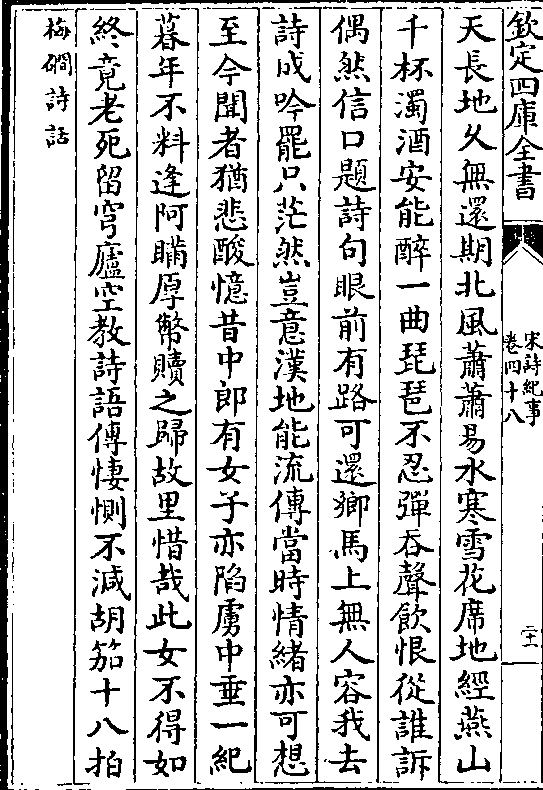 欽定四庫全書
宋詩紀事
卷四十八
二十一
天長地久無還期北風蕭蕭易水寒雪花席地經燕山
千杯濁酒安能醉一曲琵琶不忍彈吞聲飲恨從誰訴
偶然信口題詩句眼前有路可還鄉馬上無人容我去
詩成吟罷只茫然豈意漢地能流傳當時情緒亦可想
至今聞者猶悲酸憶昔中郎有女子亦陷虜中垂一紀
暮年不料逢阿瞞厚幣贖之歸故里惜哉此女不得如
終竟老死留穹廬空教詩語傳悽惻不減胡笳十八拍
梅磵詩話